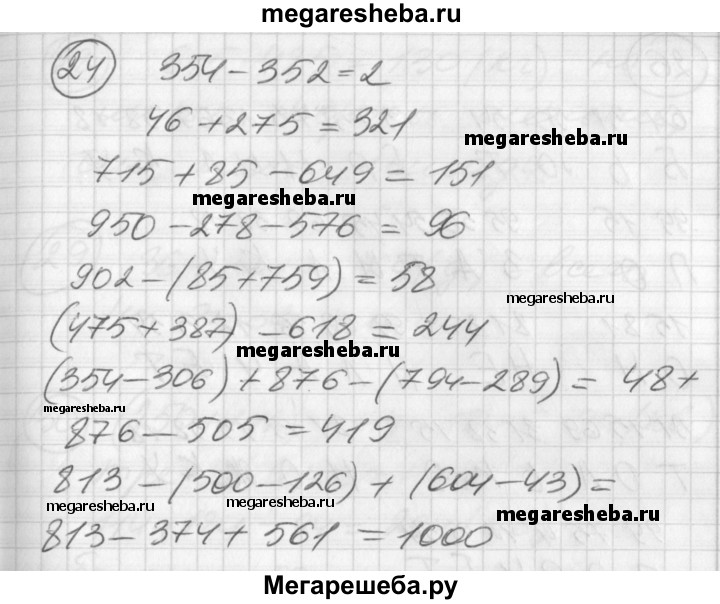 megaresheba.ru
24 354 – 352 = 2
46 + 275 = 321
megaresheba.ru
715 + 85 – 649 = 151
megaresheba.ru
950 – 278 – 576 = 96
902 – (85 + 759) = 58
megaresheba.ru
(475 + 387) – 618 = 244
megaresheba.ru
(354 – 306) + 876 – (794 – 289) = 48 +
megaresheba.ru
876 – 505 = 419
813 – (500 – 126) + (604 – 43) =
megaresheba.ru megaresheba.ru megaresheba.ru
813 – 374 + 561 = 1000
Мегарешеба.ру